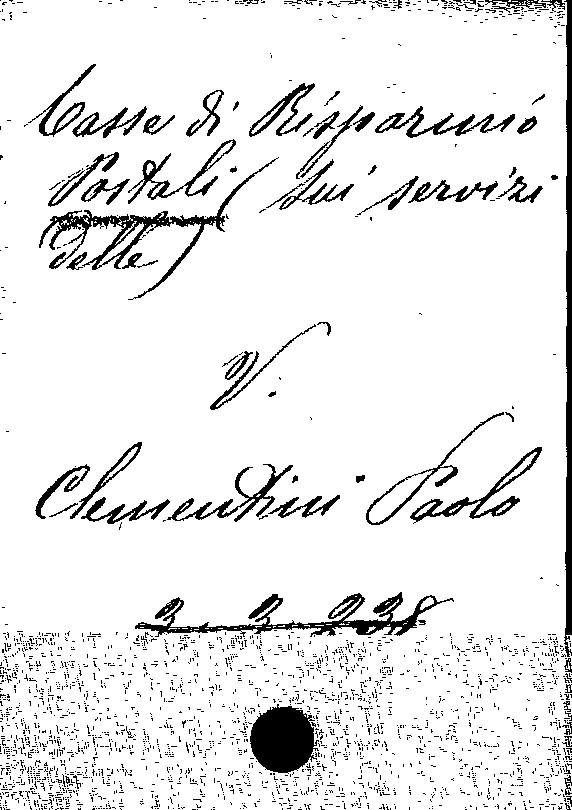 Casse di Risparmio
Postali (Sui servizi
delle)
V.
Clementini Paolo
3. 3. 238